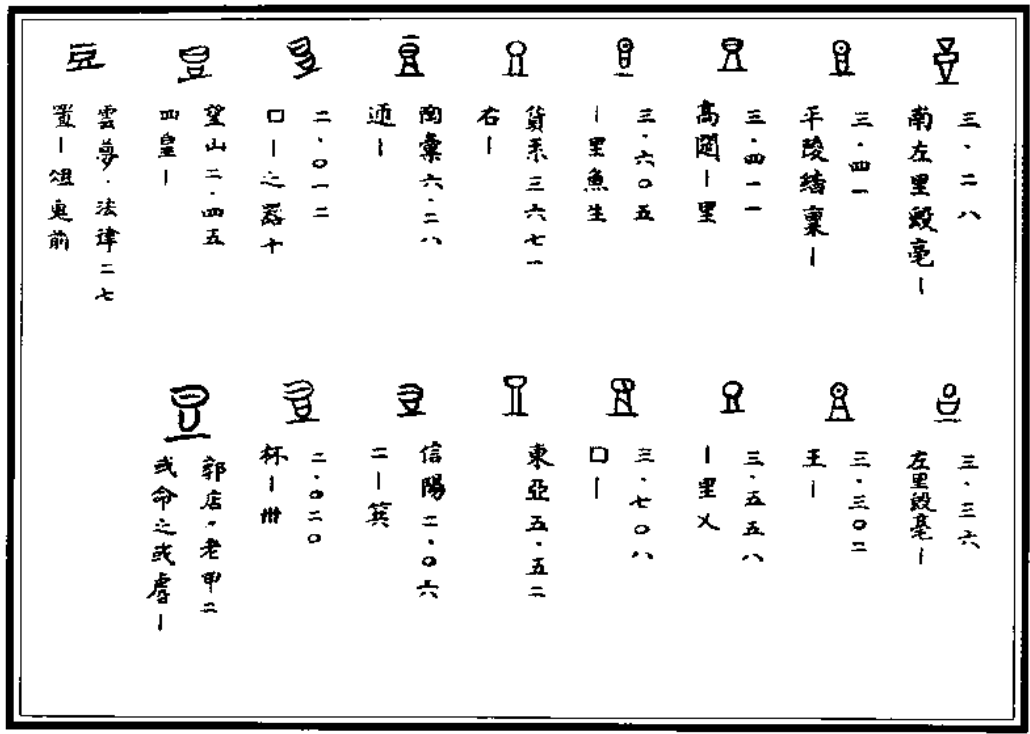 三·二八
南左里㱿亳丨
三·四一
平陵縉稟丨
三·四一一
高閭丨里
三·六〇五
丨里魚生
貨系三六七一
右丨
陶彙六·二八
丨
二·〇一二
口丨之器十
望山二·四五
四皇丨
雲夢·法律二七
置丨俎前
三·三六
左里㱿亳丨
三·三〇二
王丨
三·五五八
丨里乂
三·七〇八
口丨
東亞五·五二
信陽二·〇六
二丨箕
二·〇二〇
杯丨卌
郭店·老甲二
或命之或虖丨